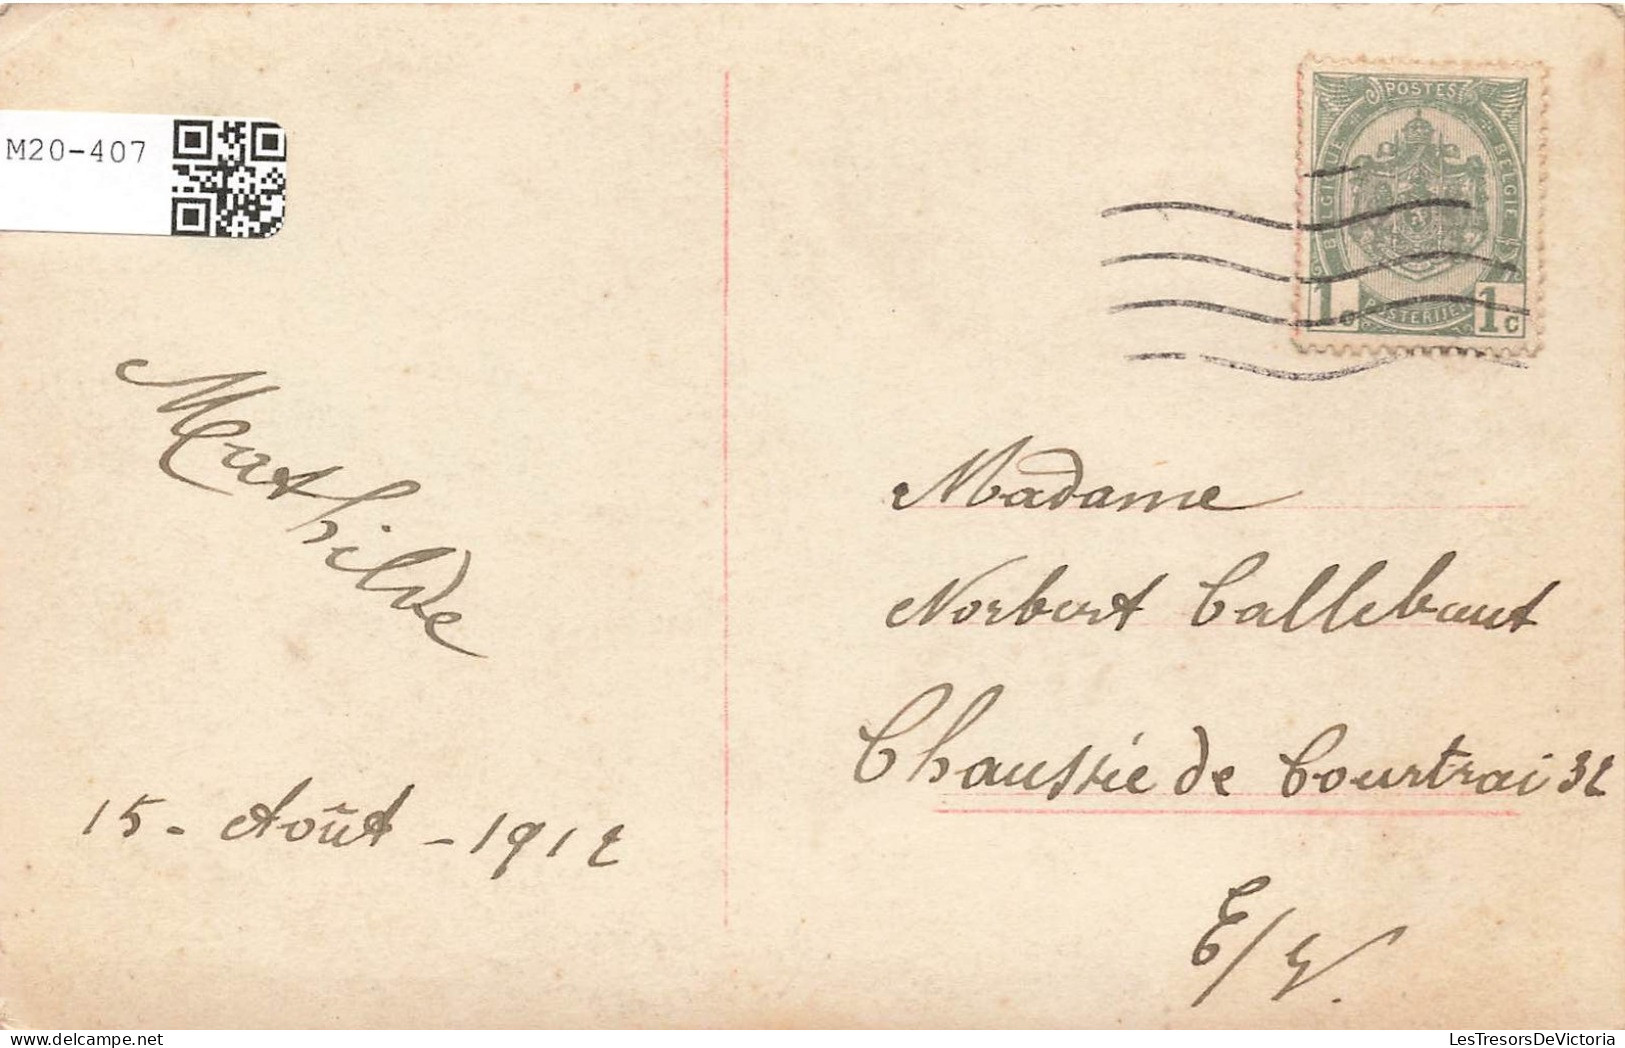 M20-407
POSTES
BELGIQUE
BELGIE
POSTERIJEN
1c
1c
Mathilde
15 - Août - 1912
Madame
Norbert Callebaut
Chaussée de Courtrai 32
E/V.
LesTresorsDeVictoria